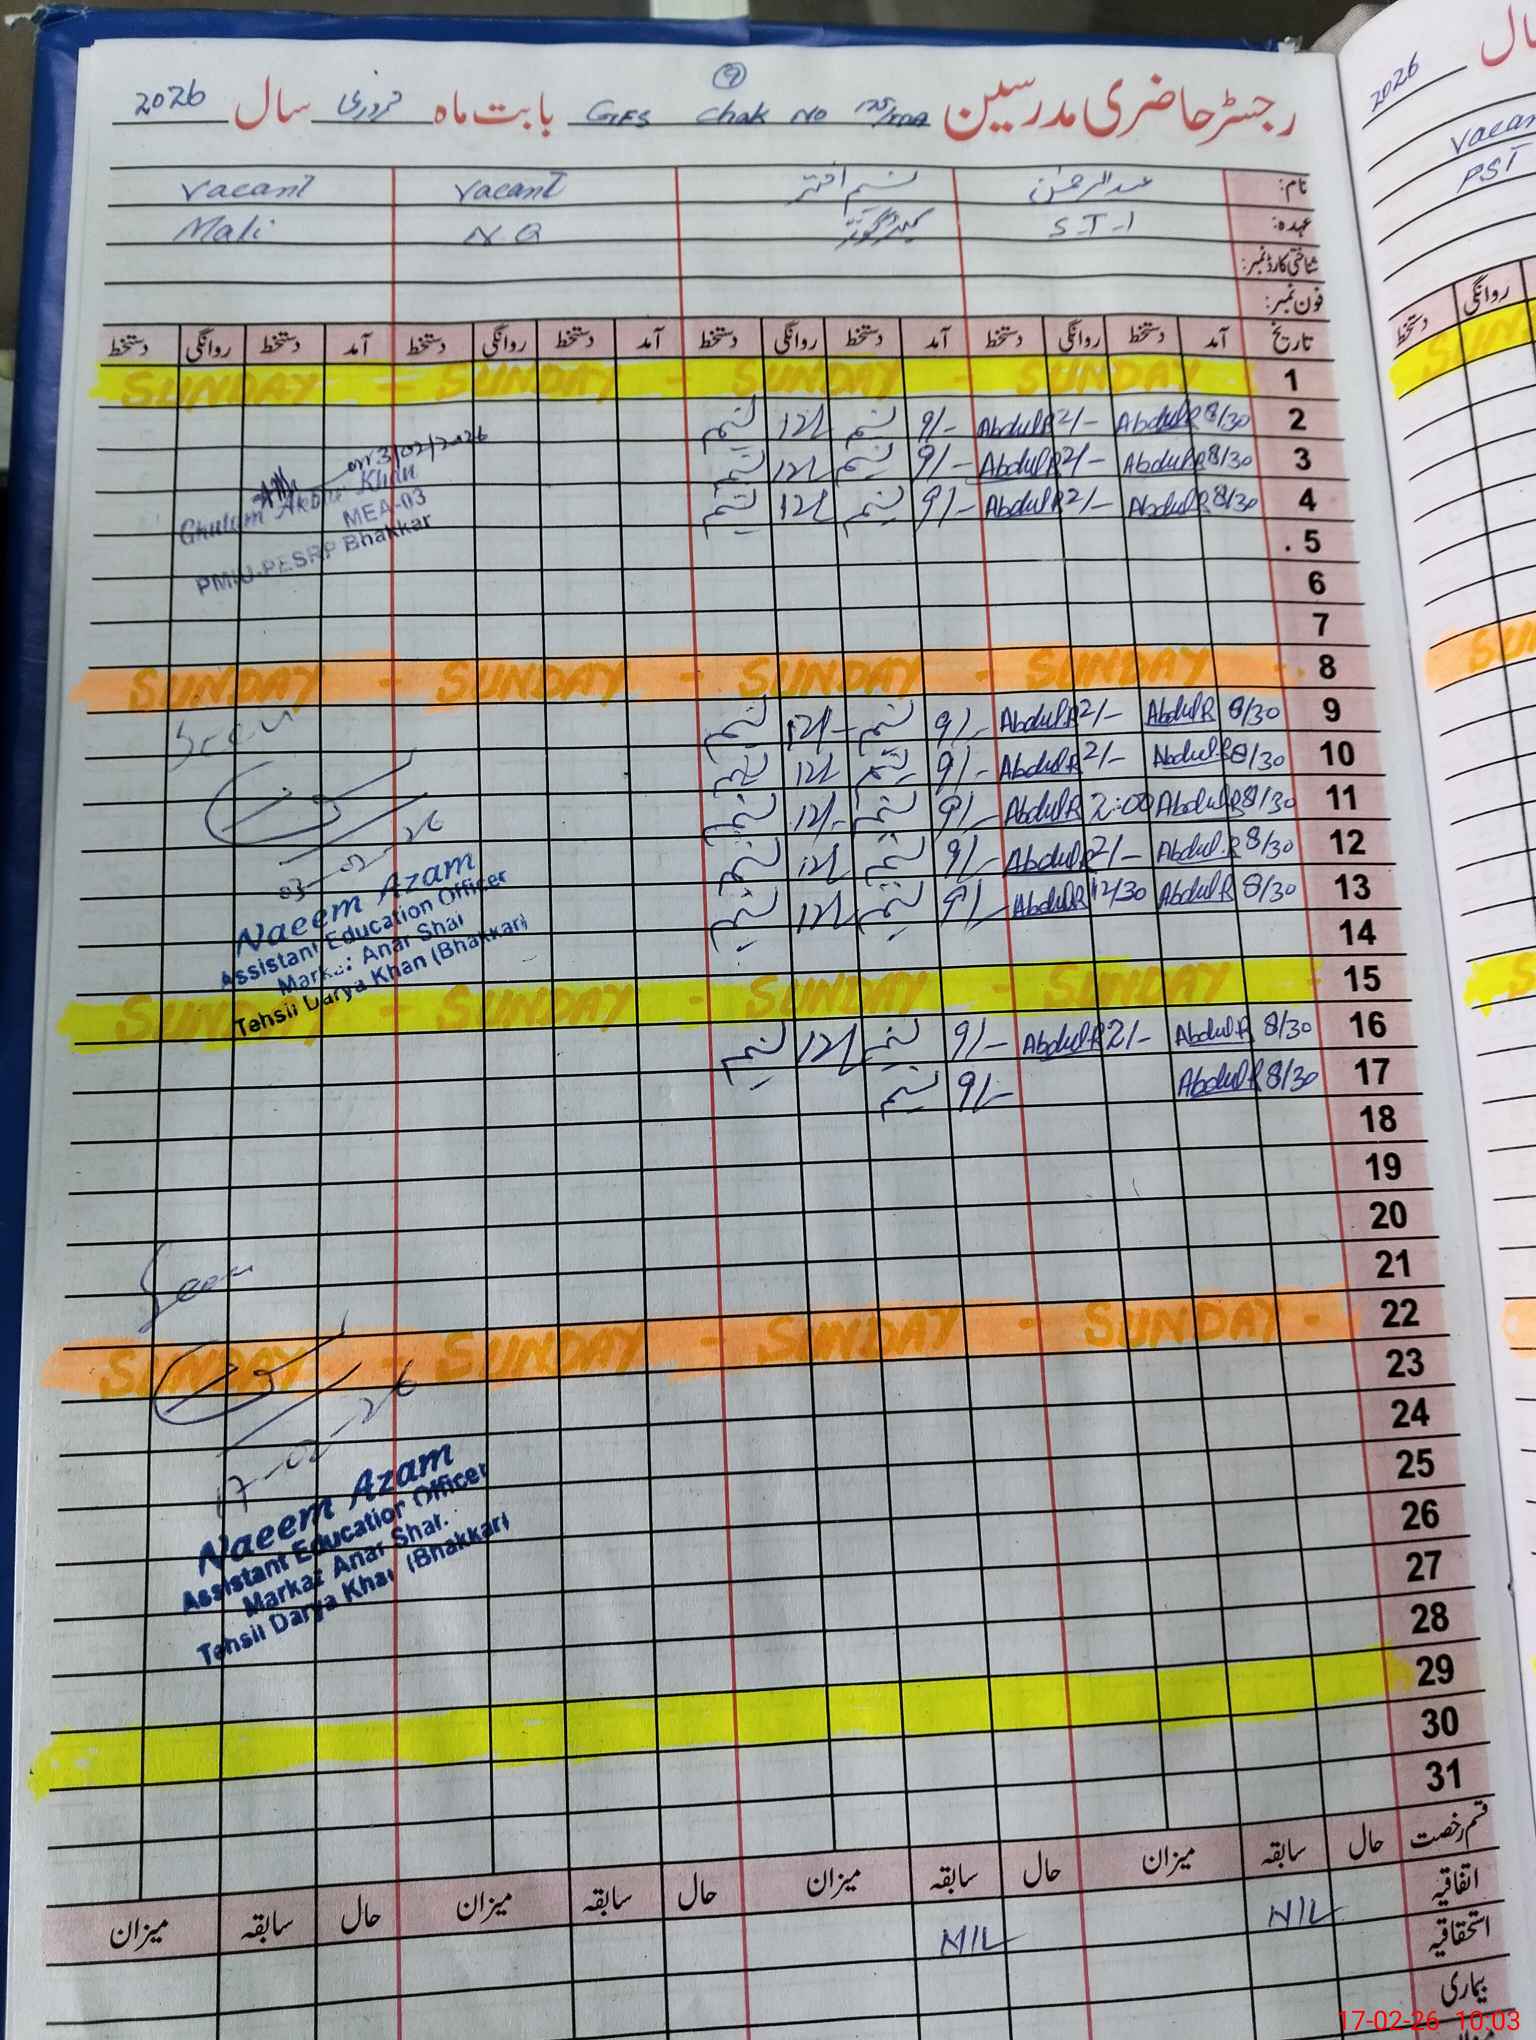 رجسٹر حاضری مدرسین GES Chak No 125/MDA بابت ماہ فروری سال 2026
9
نام: عبدالرحمن نسیم اختر Vacant Vacant
عہدہ: S-T-I N.Q Mali
شناختی کارڈ نمبر:
فون نمبر:
تاریخ آمد دستخط روانگی دستخط آمد دستخط روانگی دستخط آمد دستخط روانگی دستخط آمد دستخط روانگی دستخط
1 SUNDAY - SUNDAY - SUNDAY - SUNDAY
2 8/30 AbdulR 2/- AbdulR 9/- نسیم 12/ نسیم
3 8/30 AbdulR 2/- AbdulR 9/- نسیم 12/ نسیم
4 8/30 AbdulR 2/- AbdulR 9/- نسیم 12/ نسیم
5
6
7
on 3/02/2026
Ghulam Akbar Khan
MEA-03
PMIU-PESRP Bhakkar
8 SUNDAY - SUNDAY - SUNDAY - SUNDAY
9 8/30 AbdulR 2/- AbdulR 9/- نسیم 12/- نسیم
10 8/30 AbdulR 2/- AbdulR 9/- نسیم 12/ نسیم
11 8/30 AbdulR 2:00 AbdulR 9/- نسیم 12/- نسیم
12 8/30 AbdulR 2/- AbdulR 9/- نسیم 12/ نسیم
13 8/30 AbdulR 12/30 AbdulR 9/- نسیم 12/ نسیم
14
Seen
03-02-26
Naeem Azam
Assistant Education Officer
Markaz: Anar Shar
Tehsil Darya Khan (Bhakkar)
15 SUNDAY - SUNDAY - SUNDAY - SUNDAY
16 8/30 AbdulR 2/- AbdulR 9/- نسیم 12/ نسیم
17 8/30 AbdulR 9/- نسیم
18
19
20
21
Seen
22 SUNDAY - SUNDAY - SUNDAY - SUNDAY -
23
24
17-02-26
Naeem Azam
Assistant Education Officer
Markaz Anar Shar.
Tehsil Darya Khan (Bhakkar)
25
26
27
28
29
30
31
قسم رخصت حال سابقہ میزان حال سابقہ میزان حال سابقہ میزان حال سابقہ میزان
اتفاقیہ NIL NIL
استحقاقیہ
بیماری
سال
2026
Vacan
PST
روانگی دستخط
17-02-26 10,03